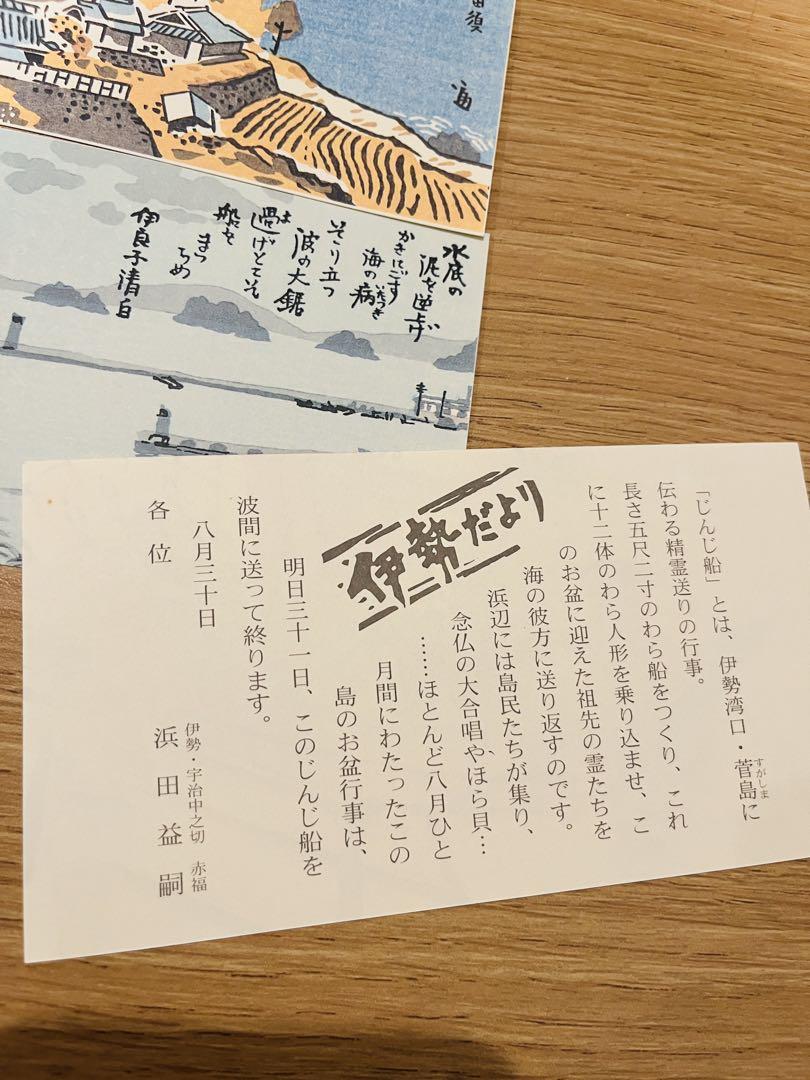 須
水底の
泥を逆上げ
かきにごす
海の病
いたつき
そゝり立つ
波の大鋸
過げとてそ
船を
まつ
らめ
伊良子清白
伊勢だより
「じんじ船」とは、伊勢湾口・菅島に
すがしま
伝わる精霊送りの行事。
長さ五尺二寸のわら船をつくり、これ
に十二体のわら人形を乗り込ませ、こ
のお盆に迎えた祖先の霊たちを
海の彼方に送り返すのです。
浜辺には島民たちが集り、
念仏の大合唱や、ほら貝…
……ほとんど八月ひと
月間にわたったこの
島のお盆行事は、
明日三十一日、このじんじ船を
波間に送って終ります。
八月三十日
伊勢・宇治中之切 赤福
浜田益嗣
各位